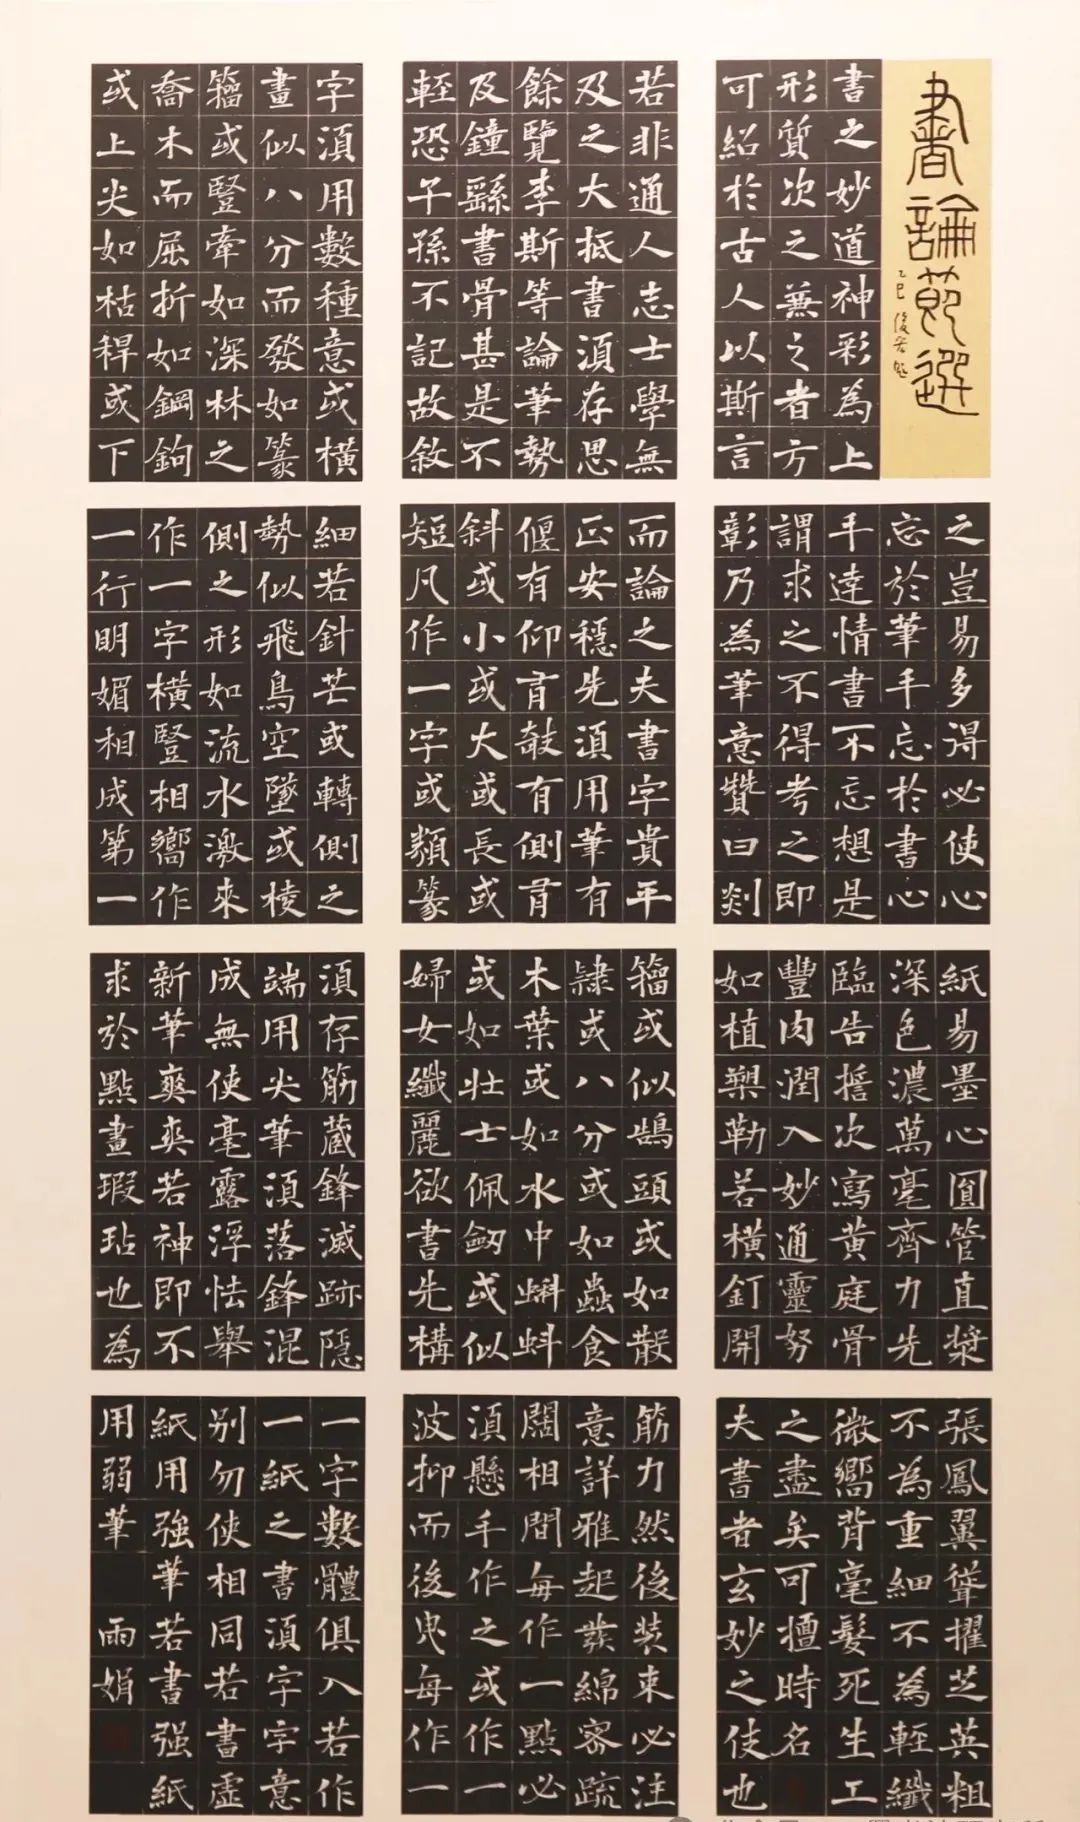 書論節選
乙巳
書之妙道神彩為上
形質次之兼之者方
可紹於古人以斯言
之豈易多得必使心
忘於筆手忘於書心
手達情書不忘想是
謂求之不得考之即
彰乃為筆意贊曰剡
紙易墨心圓管直漿
深色濃萬毫齊力先
臨告誓次寫黃庭骨
豐肉潤入妙通靈努
如植槊勒若橫釘開
張鳳翼聳擢芝英粗
不為重細不為輕纖
微嚮背毫髮死生工
之盡矣可擅時名
夫書者玄妙之伎也
若非通人志士學無
及之大抵書須存思
餘覽李斯等論筆勢
及鐘繇書骨甚是不
輕恐子孫不記故敘
而論之夫書字貴平
正安穩先須用筆有
偃有仰有欹有側有
斜或小或大或長或
短凡作一字或類篆
籀或似鵠頭或如散
隸或八分或如蟲食
木葉或如水中蝌蚪
或如壯士佩劒或似
婦女纖麗欲書先構
筋力然後裝束必注
意詳雅起發綿密疏
闊相間每作一點必
須懸手作之或作一
波抑而後曳每作一
字須用數種意或橫
畫似八分而發如篆
籀或豎牽如深林之
喬木而屈折如鋼鉤
或上尖如枯稈或下
細若針芒或轉側之
勢似飛鳥空墜或棱
側之形如流水激來
作一字橫豎相嚮作
一行明媚相成第一
須存筋藏鋒滅跡隱
端用尖筆須落鋒混
成無使毫露浮怯舉
新筆爽爽若神即不
求於點畫瑕玷也為
一字數體俱入若作
一紙之書須字字意
別勿使相同若書虛
紙用強筆若書强紙
用弱筆 雨娟